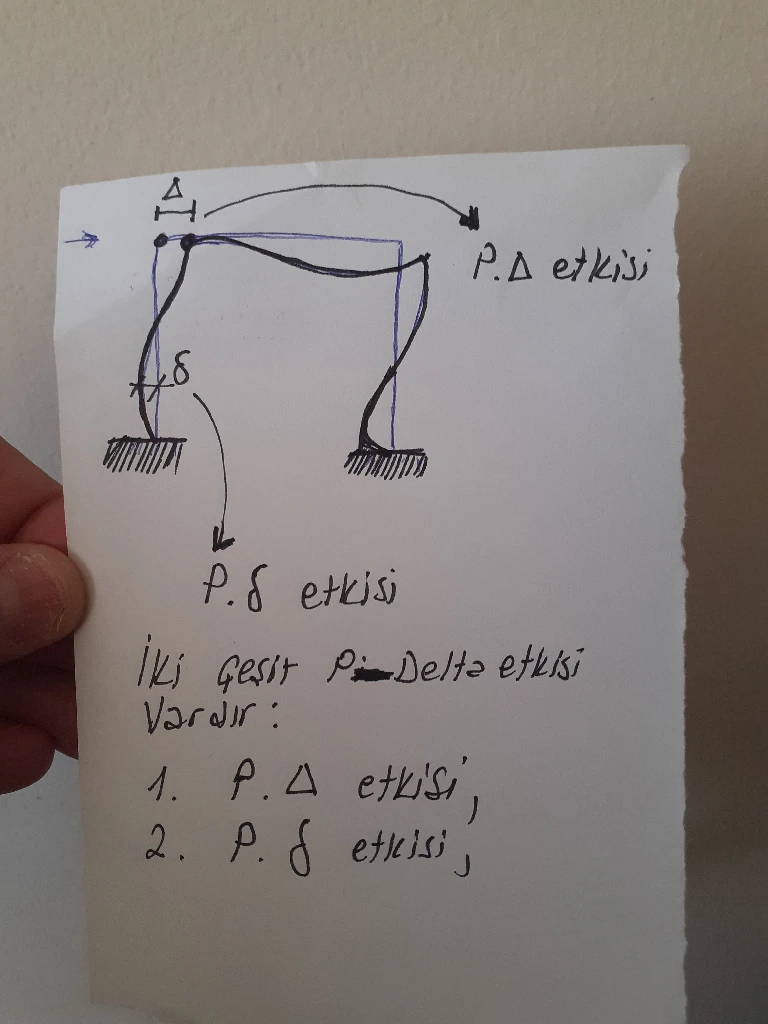 Δ
P.Δ etkisi
δ
P.δ etkisi
İki Çeşit P-Delta etkisi
Vardır:
1. P.Δ etkisi,
2. P.δ etkisi,